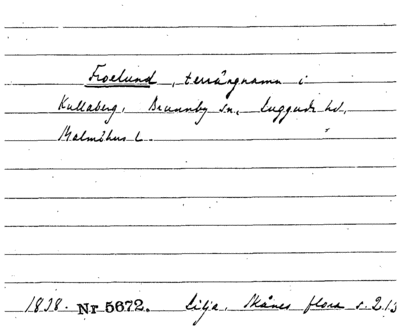 Froelund, terrängnamn i
Kullaberg, Brunnby sn, Luggude hd,
Malmöhus l.
1838. Nr 5672. Lilja, Skånes flora s. 213